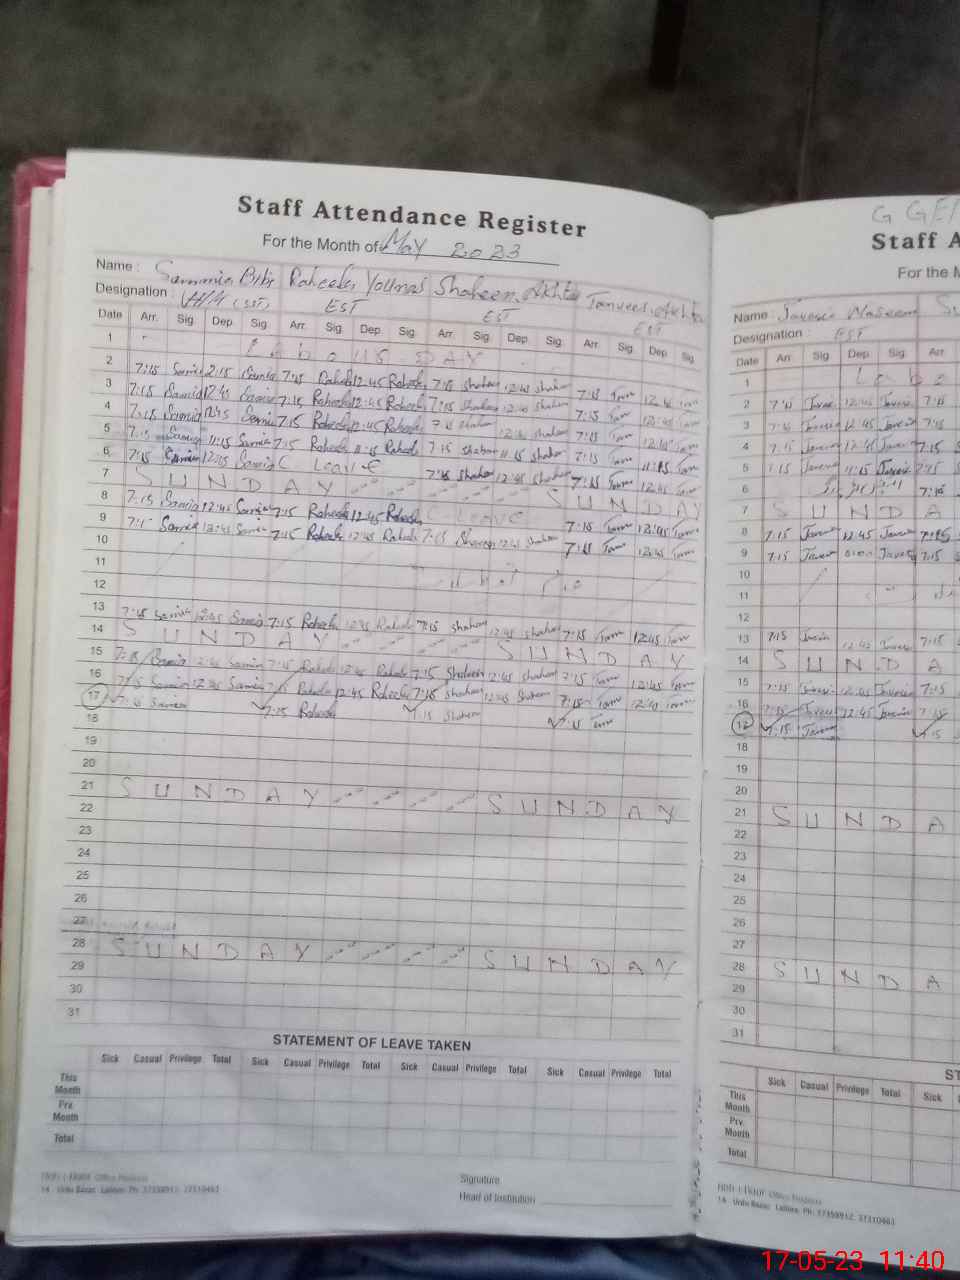 Staff Attendance Register
For the Month of May 2023
Name : Sammia Bibi Raheela Younas Shaheen Akhtar Tanveer Akhtar
Designation : H/M (SST) EST EST EST
Date Arr. Sig. Dep. Sig. Arr. Sig. Dep. Sig. Arr. Sig. Dep. Sig. Arr. Sig. Dep. Sig.
1 Labour DAY
2 7:15 Samia 12:15 Samia 7:15 Raheela 12:45 Raheela 7:15 Shaheen 12:45 Shaheen 7:15 Tan 12:45 Tan
3 7:15 Samia 12:45 Samia 7:15 Raheela 12:45 Raheela 7:15 Shaheen 12:45 Shaheen 7:15 Tan 12:45 Tan
4 7:15 Samia 12:45 Samia 7:15 Raheela 12:45 Raheela 7:15 Shaheen 12:45 Shaheen 7:15 Tan 12:45 Tan
5 7:15 Samia 11:15 Samia 7:15 Raheela 11:15 Raheela 7:15 Shaheen 11:15 Shaheen 7:15 Tan 11:15 Tan
6 7:15 Samia 12:45 Samia C Leave 7:15 Shaheen 12:45 Shaheen 7:15 Tan 12:45 Tan
7 SUNDAY SUNDAY
8 7:15 Samia 12:45 Samia 7:15 Raheela 12:45 Raheela C LEAVE 7:15 Tan 12:45 Tan
9 7:15 Samia 12:45 Samia 7:15 Raheela 12:45 Raheela 7:15 Shaheen 12:45 Shaheen 7:15 Tan 12:45 Tan
10
11
12
13 7:15 Samia 12:45 Samia 7:15 Raheela 12:45 Raheela 7:15 Shaheen 12:45 Shaheen 7:15 Tan 12:45 Tan
14 SUNDAY SUNDAY
15 7:15 Samia 12:45 Samia 7:15 Raheela 12:45 Raheela 7:15 Shaheen 12:45 Shaheen 7:15 Tan 12:45 Tan
16 7:15 Samia 12:45 Samia 7:15 Raheela 12:45 Raheela 7:15 Shaheen 12:45 Shaheen 7:15 Tan 12:45 Tan
17 7:15 Samia 7:15 Raheela 7:15 Shaheen 7:15 Tan
18
19
20
21 SUNDAY SUNDAY
22
23
24
25
26
27
28 SUNDAY SUNDAY
29
30
31
STATEMENT OF LEAVE TAKEN
Sick Casual Privilege Total Sick Casual Privilege Total Sick Casual Privilege Total Sick Casual Privilege Total
This Month
Prv. Month
Total
Signature
Head of Institution
14 Urdu Bazar Lahore Ph: 37350912, 37310463
G GE
Staff A
For the M
Name : Naseem
Designation : EST
Date Arr. Sig. Dep. Sig. Arr.
1 Labo
2 7:15 12:45 7:15
3 7:15 12:45 7:15
4 7:15 12:45 7:15
5 7:15 11:15 7:15
6 7:15
7 SUNDA
8 7:15 12:45 7:15
9 7:15 7:15
10
11
12
13 7:15 12:45 7:15
14 SUNDA
15 7:15 12:45 7:15
16 7:15 12:45 7:15
17 7:15 7:15
18
19
20
21 SUNDA
22
23
24
25
26
27
28 SUNDA
29
30
31
ST
Sick Casual Privilege Total Sick
This Month
Prv. Month
Total
14 Urdu Bazar Lahore, Ph: 37350912, 37310463
17-05-23 11:40